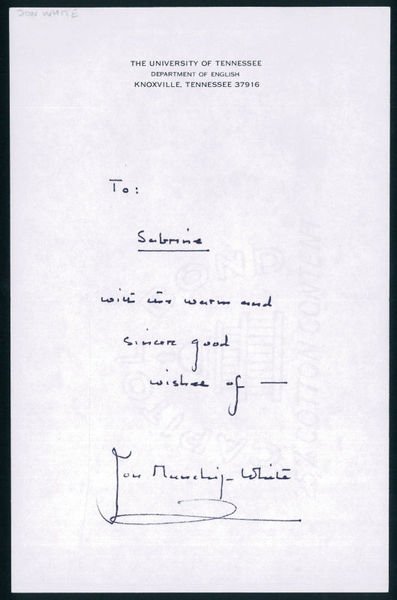 JON WHITE
THE UNIVERSITY OF TENNESSEE
DEPARTMENT OF ENGLISH
KNOXVILLE, TENNESSEE 37916
To:
Sabrine
with the warm and
sincere good
wishes of —
Jon Manchip-White